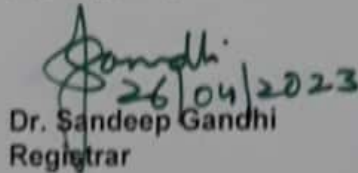 Gandhi
26/04/2023
Dr. Sandeep Gandhi
Registrar